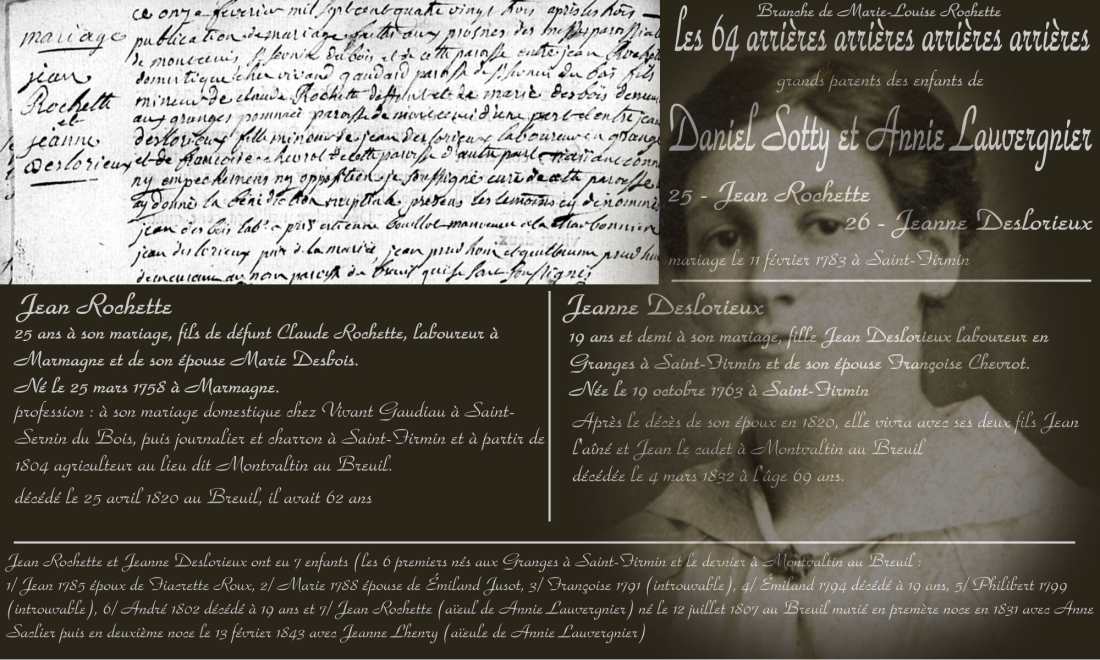 mariage
jean
Rochette
et
jeanne
Deslorieux
ce onze fevrier mil sept cent quatre vingt trois après les trois
publication de mariage faitte aux prosnes des messes paroissial
de montcenis, st sernin du bois et de cette paroisse entre jean Rochette
domestique chez vivand gaudiard paroisse de st sernin du bois fils
mineur de claude Rochette deffunt et de marie desbois demeu
aux granges paroisse de d'une part et entre jean
deslorieux fille mineure de jean deslorieux laboureur en grange
et de francoise chevrot de cette paroisse d'autre part n'aïant conn
ny empechemens ny opposition je soussigné curé de cette paroisse
ay donné la bénédiction nuptiale presens les temoins cy denommés
jean des bois lab. a etienne bouillot manœuvre a la charbonnier
jean deslorieux pere de la mariée, jean prud'hom et guilleaume prud'hu
demeurans au paroisse du breuil qui se sont soussignés
Branche de Marie-Louise Rochette
les 64 arrières arrières arrières arrières
grands parents des enfants de
Daniel Sotty et Annie Lauvergnier
25 - Jean Rochette
26 - Jeanne Deslorieux
mariage le 11 février 1783 à Saint-Firmin
Jean Rochette
25 ans à son mariage, fils de défunt Claude Rochette, laboureur à
Marmagne et de son épouse Marie Desbois.
Né le 25 mars 1758 à Marmagne.
profession : à son mariage domestique chez Vivant Gaudiau à Saint-
Sernin du Bois, puis journalier et charron à Saint-Firmin et à partir de
1804 agriculteur au lieu dit Montvaltin au Breuil.
décédé le 25 avril 1820 au Breuil, il avait 62 ans
Jeanne Deslorieux
19 ans et demi à son mariage, fille Jean Deslorieux laboureur en
Granges à Saint-Firmin et de son épouse Françoise Chevrot.
Née le 19 octobre 1763 à Saint-Firmin
Après le décès de son époux en 1820, elle vivra avec ses deux fils Jean
l'aîné et Jean le cadet à Montvaltin au Breuil
décédée le 4 mars 1832 à l'âge 69 ans.
Jean Rochette et Jeanne Deslorieux ont eu 7 enfants (les 6 premiers nés aux Granges à Saint-Firmin et le dernier à Montvaltin au Breuil :
1/ Jean 1785 époux de Fiacrette Roux, 2/ Marie 1788 épouse de Émiland Jusot, 3/ Françoise 1791 (introuvable), 4/ Émiland 1794 décédé à 19 ans, 5/ Philibert 1799
(introuvable), 6/ André 1802 décédé à 19 ans et 7/ Jean Rochette (aïeul de Annie Lauvergnier) né le 12 juillet 1807 au Breuil marié en premère noce en 1831 avec Anne
Saclier puis en deuxième noce le 13 février 1843 avec Jeanne Lhenry (aïeule de Annie Lauvergnier)